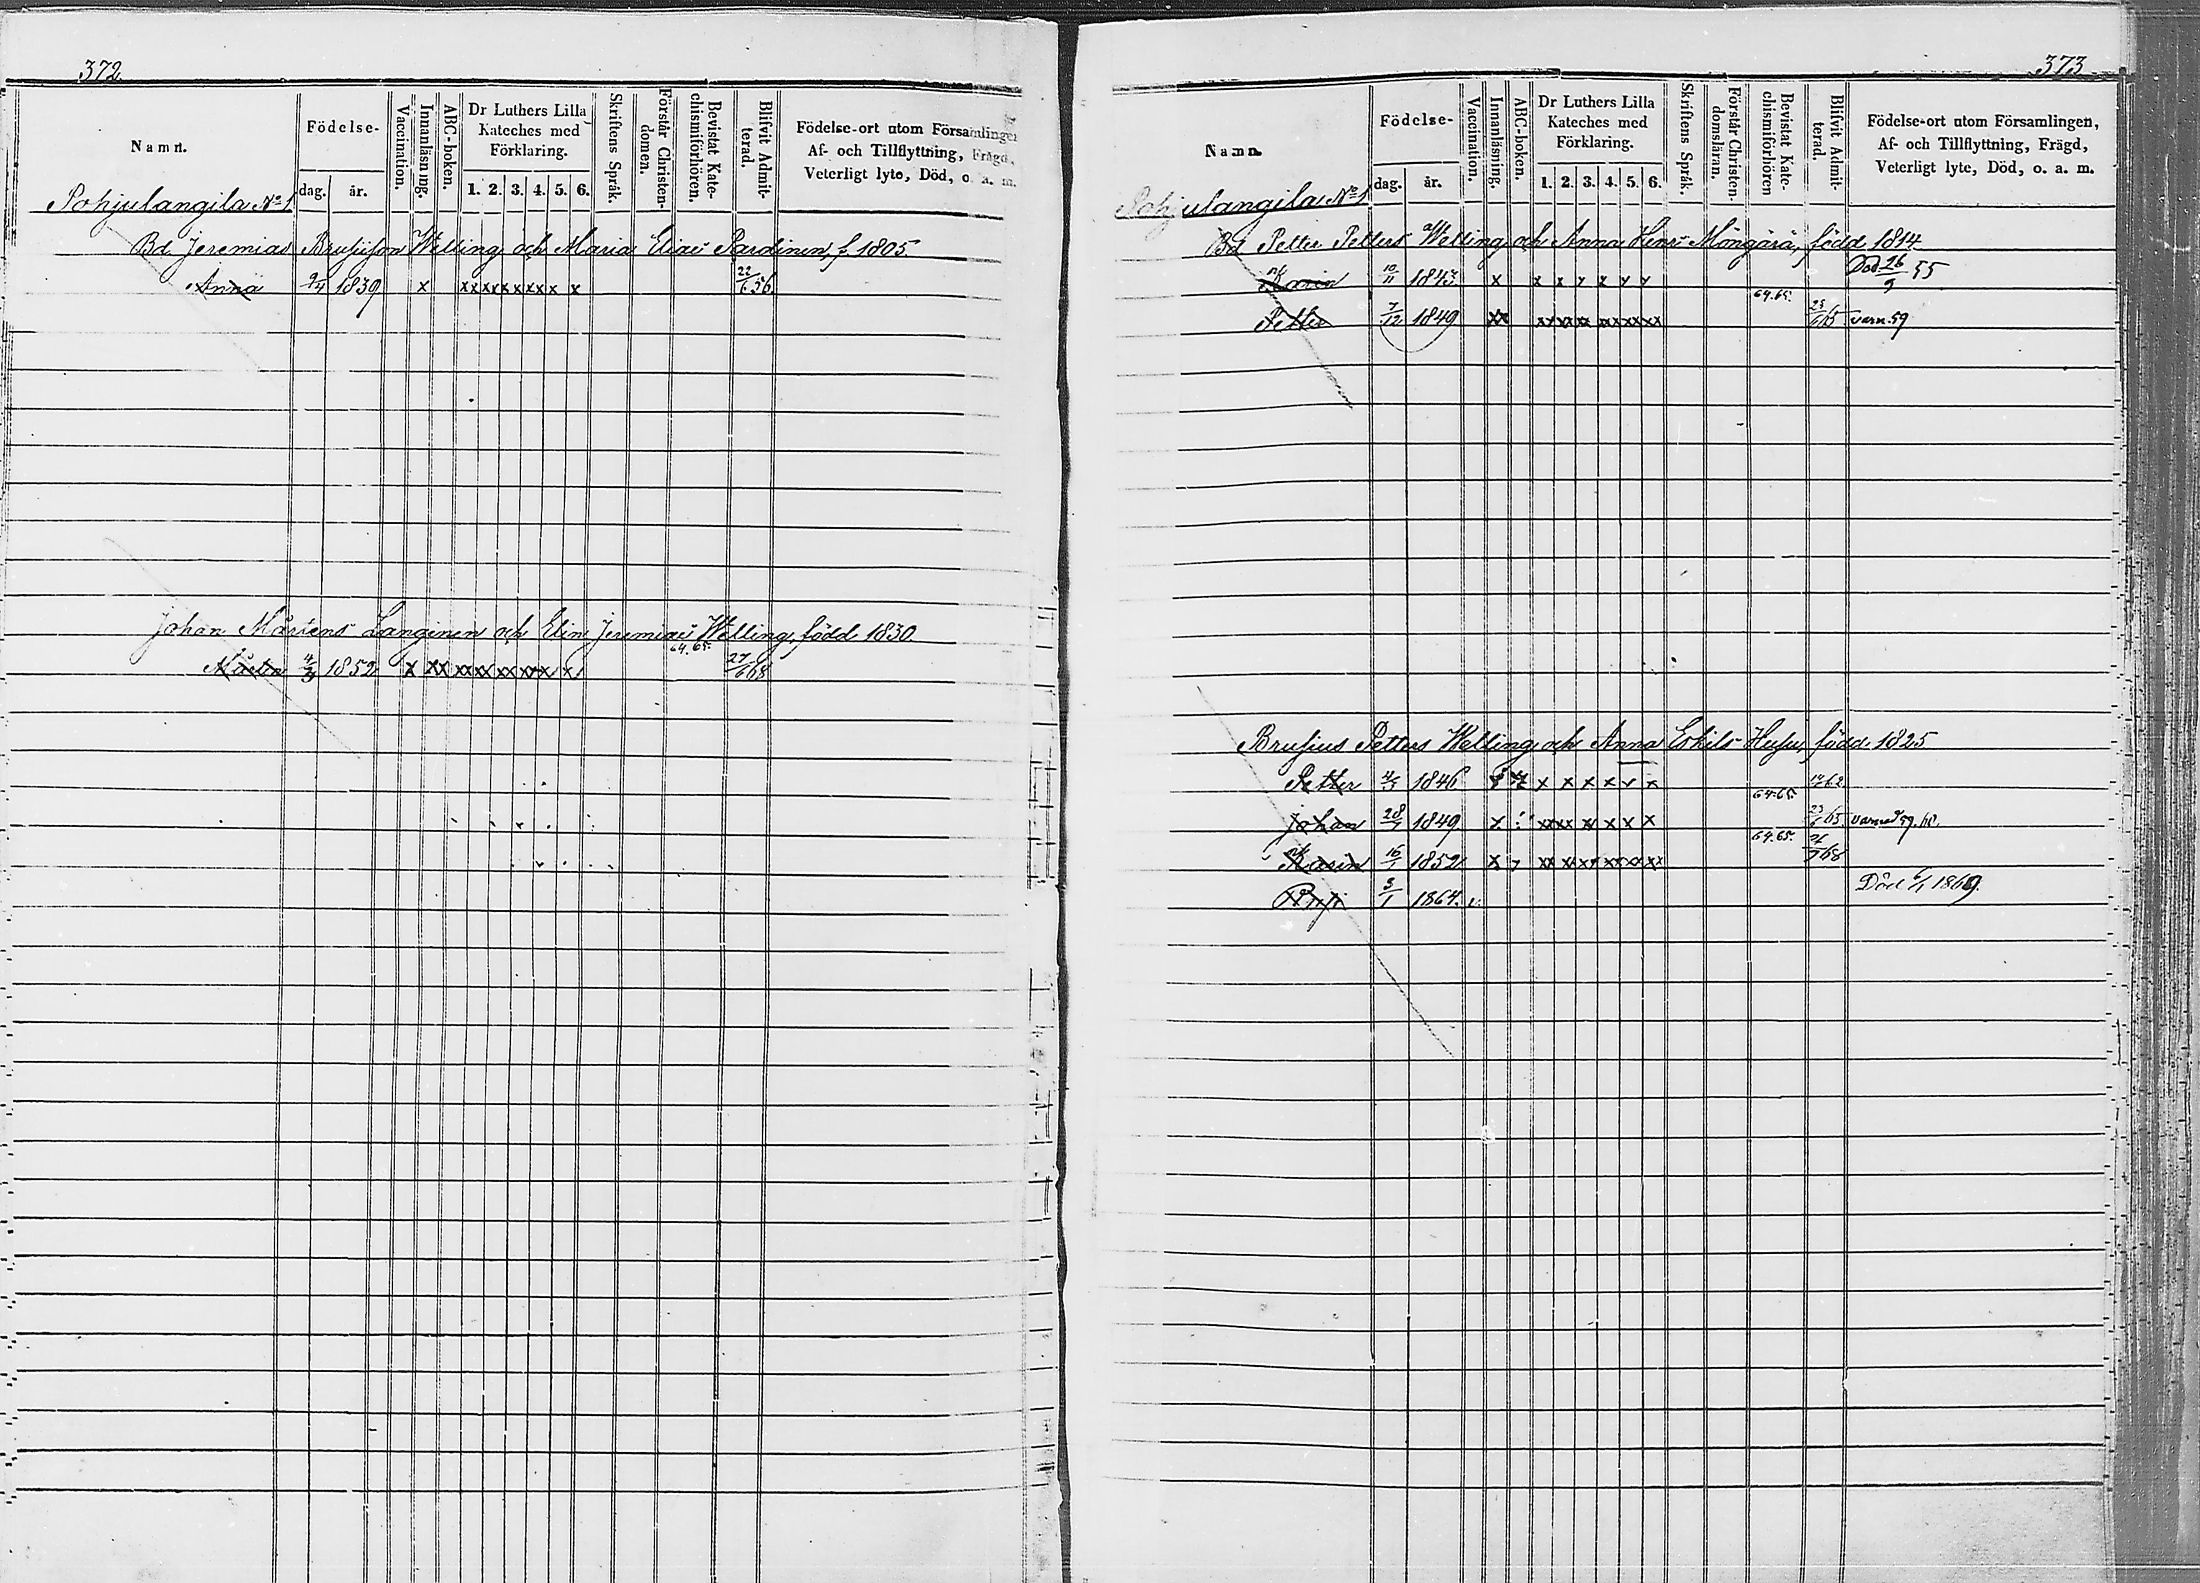 372.
Namn.
Födelse-
dag. år.
Vaccination.
Innanläsning.
ABC-boken.
Dr Luthers Lilla
Kateches med
Förklaring.
1. 2. 3. 4. 5. 6.
Skriftens Språk.
Förstår Christen-
domen.
Bevistat Kate-
chismiförhören.
Blifvit Admit-
terad.
Födelse-ort utom Församlingen
Af- och Tillflyttning, Frägd,
Veterligt lyte, Död, o. a. m.
Pohjulangila No 1
Bd Jeremias Brusiuson Welling och Maria Eliaē Pardinen, f. 1805.
Anna 9/4 1839 x xx xx x x xx x x 22/6 56.
Johan Mårtens Langinen och Elin Jeremiaē Welling, född 1830
64. 65.
Mårten 4/3 1852 x xx xx xx xx xx x 27/6 68
373
Namn.
Födelse-
dag. år.
Vaccination.
Innanläsning.
ABC-boken.
Dr Luthers Lilla
Kateches med
Förklaring.
1. 2. 3. 4. 5. 6.
Skriftens Språk.
Förstår Christen-
domsläran.
Bevistat Kate-
chismiförhören
Blifvit Admit-
terad.
Födelse-ort utom Församlingen,
Af- och Tillflyttning, Frägd,
Veterligt lyte, Död, o. a. m.
Pohjulangila No 1
Bd Petter Petters Welling och Anna Henr Möngärä, född 1814
Karin 10/11 1843 x x x x x x x Död 26/9 55
64. 65.
Petter 7/12 1849 xx xx xx xx xx xx xx 25/6 65 varn. 59
Brusius Petters Welling och Anna Eskils Husu, född 1825
Petter 4/3 1846 x x x x x x 62.
64. 65.
Johan 28/7 1849 x xx xx x x x 25/6 65. varnad 59.
64. 65.
Karin 16/1 1852 x xx xx xx xx xx xx 68
Död 6/1 1869.
Brusi 3/1 1864. v.